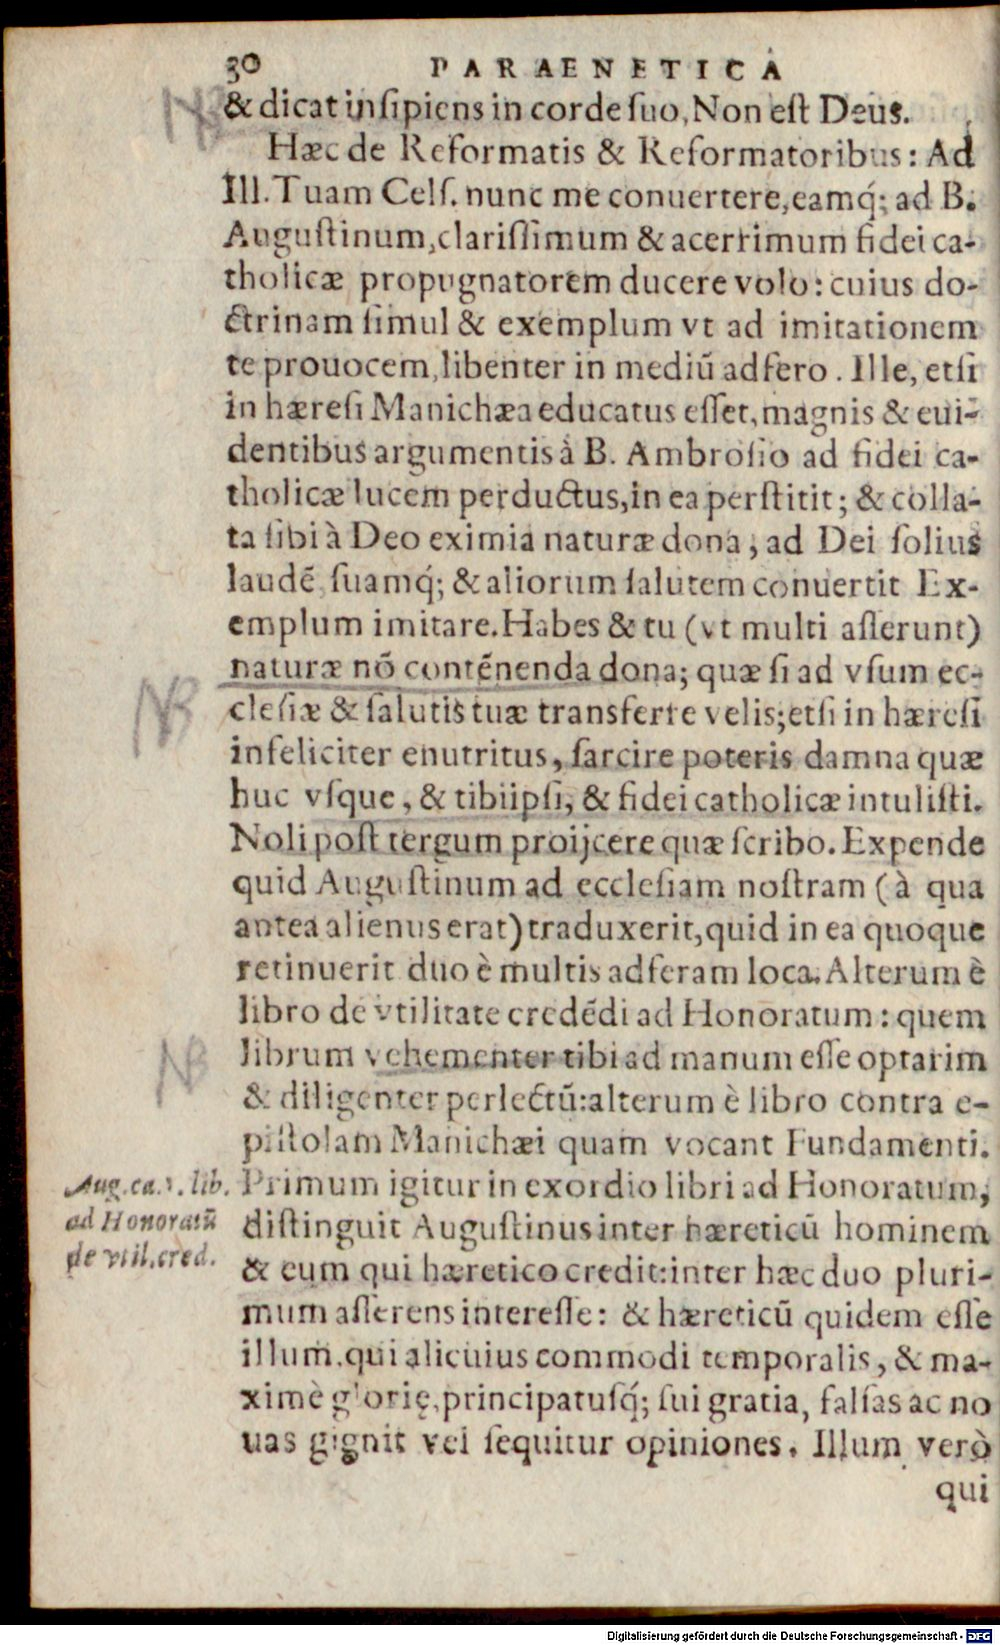 30 PARAENETICA
& dicat insipiens in corde suo, Non est Deus.
Hæc de Reformatis & Reformatoribus: Ad
Ill. Tuam Cels. nunc me conuertere, eamq́; ad B.
Augustinum, clarissimum & acerrimum fidei ca-
tholicæ propugnatorem ducere volo: cuius do-
ctrinam simul & exemplum vt ad imitationem
te prouocem, libenter in mediū adfero. Ille, etsi
in hæresi Manichæa educatus esset, magnis & eui-
dentibus argumentis à B. Ambrosio ad fidei ca-
tholicæ lucem perductus, in ea perstitit; & colla-
ta sibi à Deo eximia naturæ dona, ad Dei solius
laudē, suamq́; & aliorum salutem conuertit Ex-
emplum imitare. Habes & tu (vt multi asserunt)
naturæ nō contēnenda dona; quæ si ad vsum ec-
clesiæ & salutis tuæ transferre velis; etsi in hæresi
infeliciter enutritus, sarcire poteris damna quæ
huc vsque, & tibiipsi, & fidei catholicæ intulisti.
Noli post tergum proijcere quæ scribo. Expende
quid Augustinum ad ecclesiam nostram (à qua
antea alienus erat) traduxerit, quid in ea quoque
retinuerit duo è multis adferam loca. Alterum è
libro de vtilitate credēdi ad Honoratum: quem
librum vehementer tibi ad manum esse optarim
& diligenter perlectū: alterum è libro contra e-
pistolam Manichæi quam vocant Fundamenti.
Primum igitur in exordio libri ad Honoratum,
distinguit Augustinus inter hæreticū hominem
& eum qui hæretico credit: inter hæc duo pluri-
mum asserens interesse: & hæreticū quidem esse
illum, qui alicuius commodi temporalis, & ma-
ximè glorię, principatusq́; sui gratia, falsas ac no
uas gignit vel sequitur opiniones. Illum verò
qui
NB
NB
NB
Aug. ca. 1. lib.
ad Honoratū
de vtil. cred.
Digitalisierung gefördert durch die Deutsche Forschungsgemeinschaft - DFG